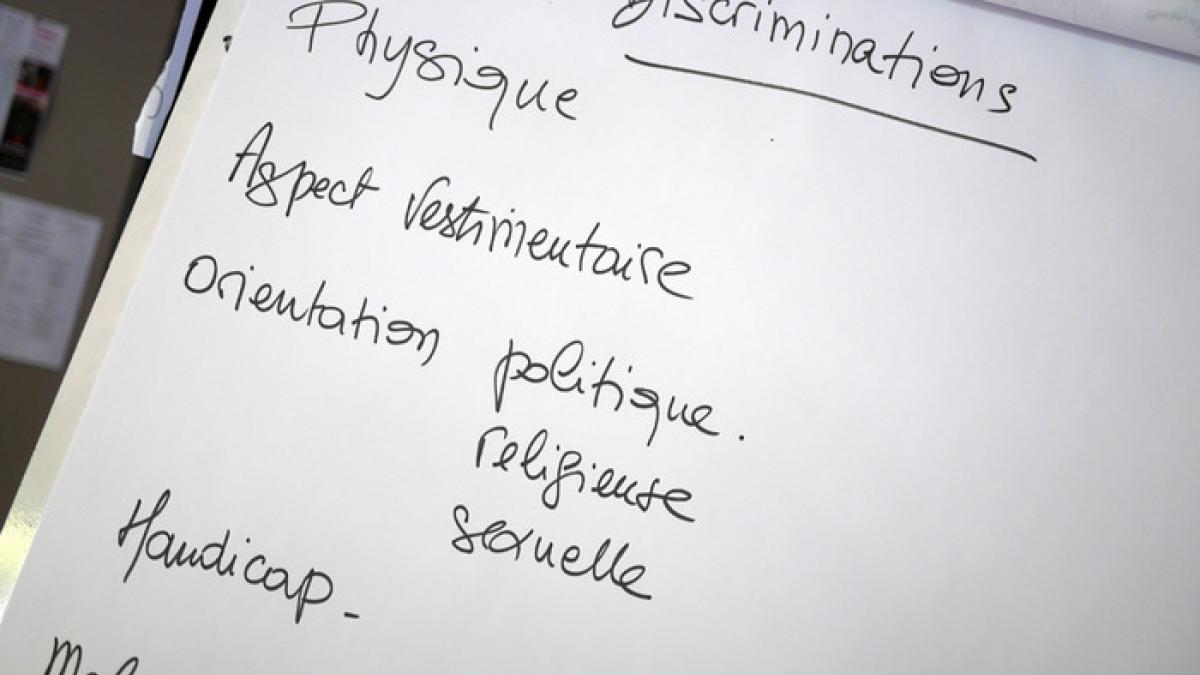 Discriminations
Physique
Aspect vestimentaire
Orientation politique.
religieuse
sexuelle
Handicap -